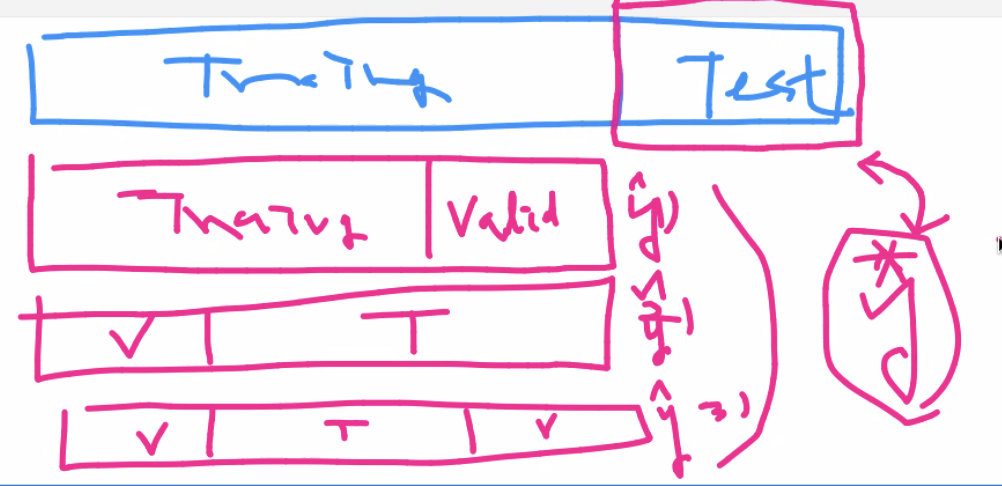 Training Test
Training Valid ŷ1)
V T ŷ2)
V T V ŷ3)
y*